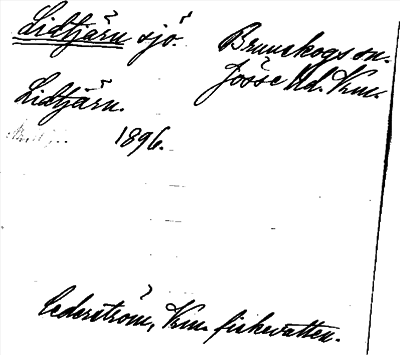 Lidtjärn sjö. Brunskogs sn.
Jösse hd. Krm.
Lidtjärn.
1896.
Cederström, Krm. fiskevatten.